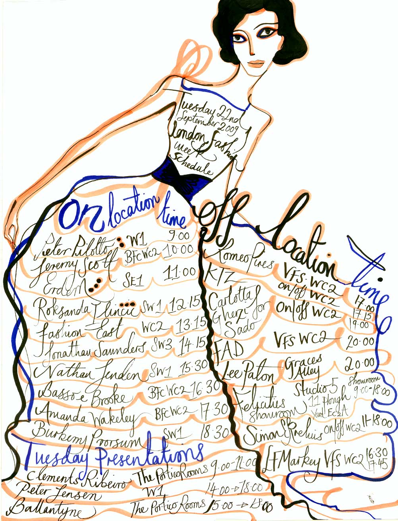 Tuesday 22nd
September 2009
London Fashion
Week
Schedule
On location time
Peter Pilotto W1 9.00
Jeremy Scott BFC WC2 10.00
Erdem SE1 11.00
Roksanda Ilincic SW1 12.15
Fashion East WC2 13.15
Jonathan Saunders SW3 14.15
Nathan Jenden SW1 15.30
Basso & Brooke BFC WC2 16.30
Amanda Wakeley BFC WC2 17.30
Burberry Prorsum SW1 18.30
Tuesday Presentations
Clements Ribeiro The Portico Rooms 9.00-11.00
Peter Jensen W1 14.00-18.00
Ballantyne The Portico Rooms 15.00-18.00
Off location time
Romeo Pires VFS WC2 17.00
KTZ on/off WC2 17.15
Carlotta on/off WC2 19.00
for
Sado
FAD VFS WC2 20.00
Lee Paton Graces Alley 20.00
Studio 5
showroom 11
showroom
9.00-18.00
Simon on/off WC2 18.00
LF Markey VFS WC2 16.30
17.45